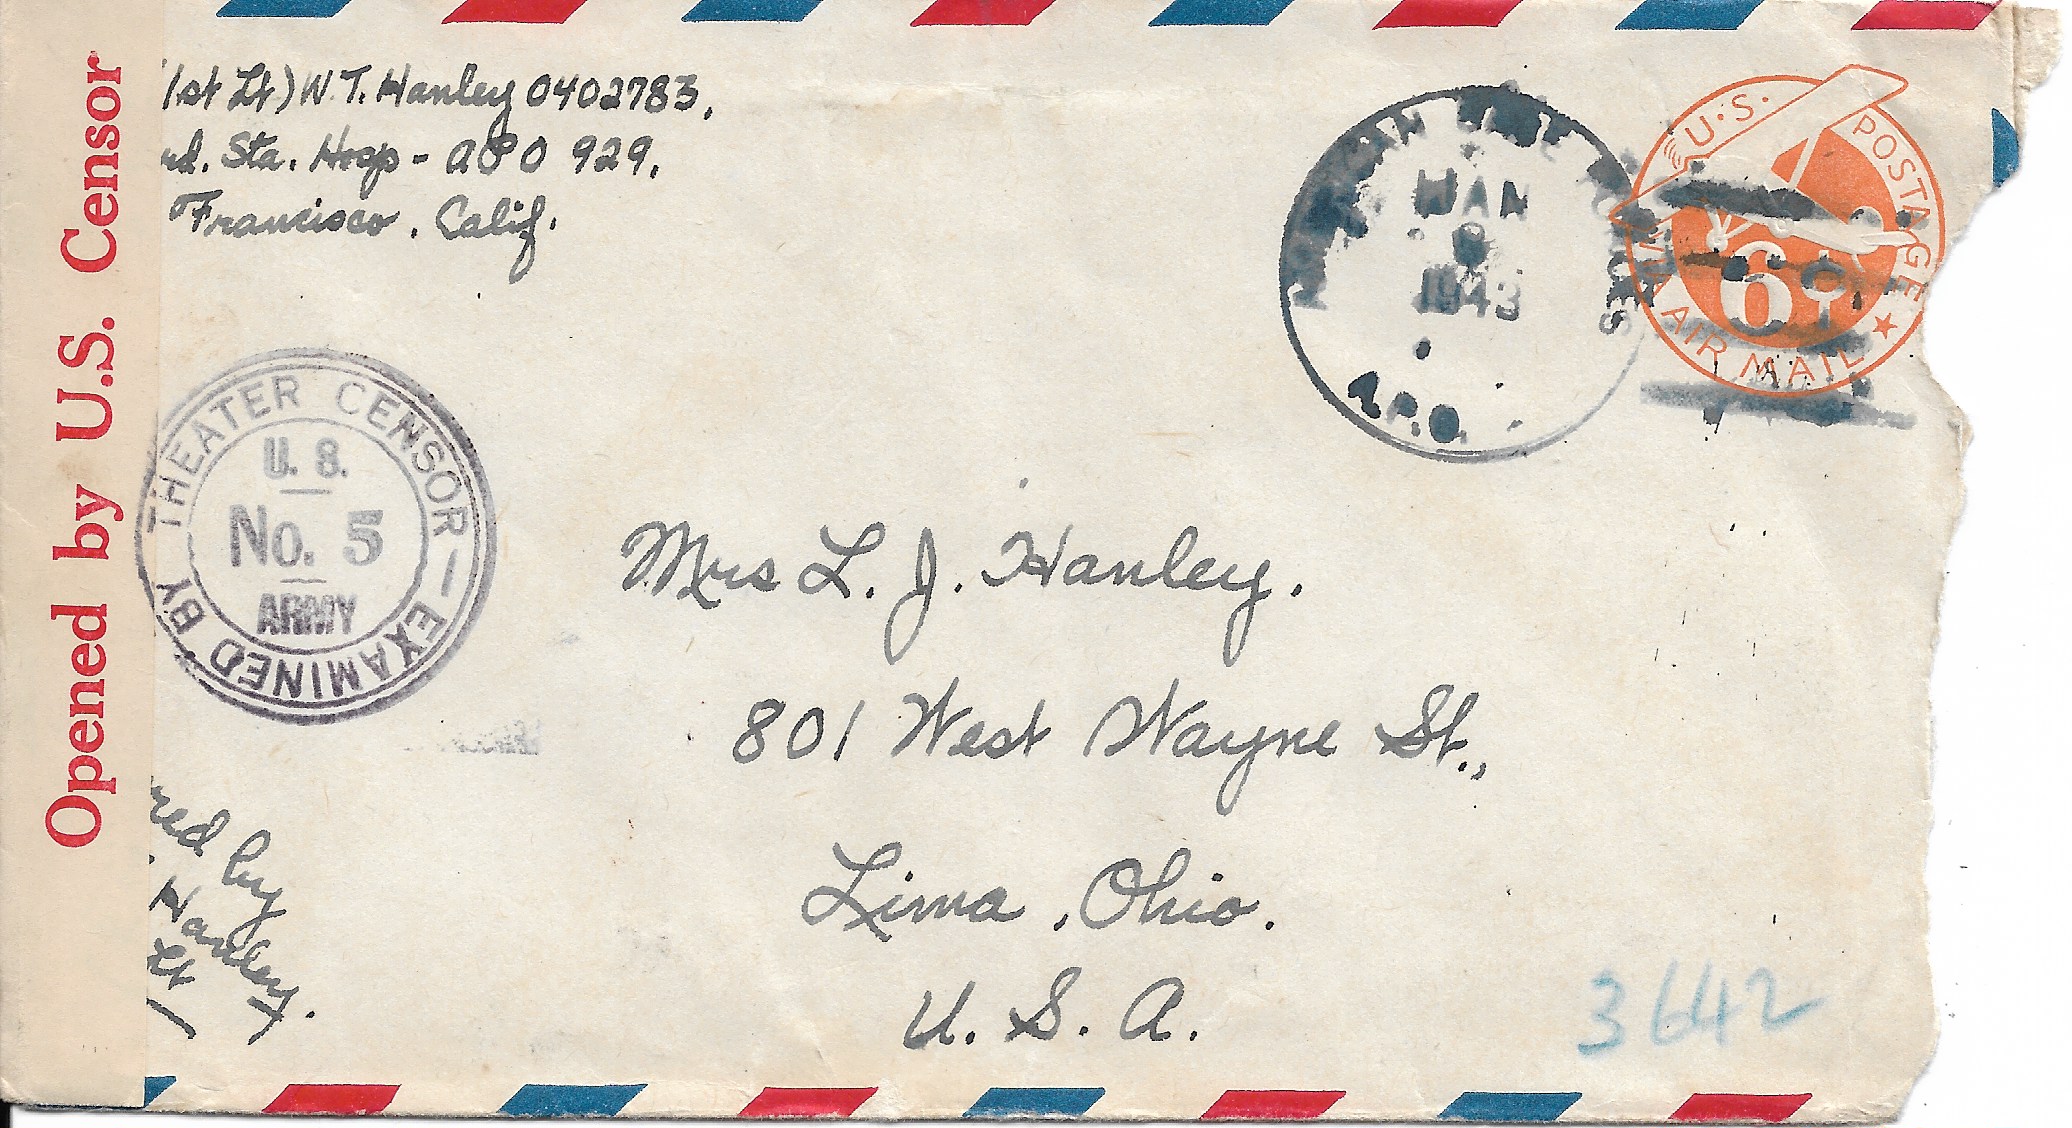 Opened by U.S. Censor
(1st Lt) W. T. Hanley 0402783,
rd. Sta. Hosp - APO 929,
Francisco, Calif.
JAN
1943
A.P.O.
U.S. POSTAGE
6¢
AIR MAIL
THEATER CENSOR — EXAMINED BY
U. S.
No. 5
ARMY
Mrs L. J. Hanley.
801 West Wayne St.,
Lima, Ohio.
U. S. A.
red by
Hanley.
Lt
3642